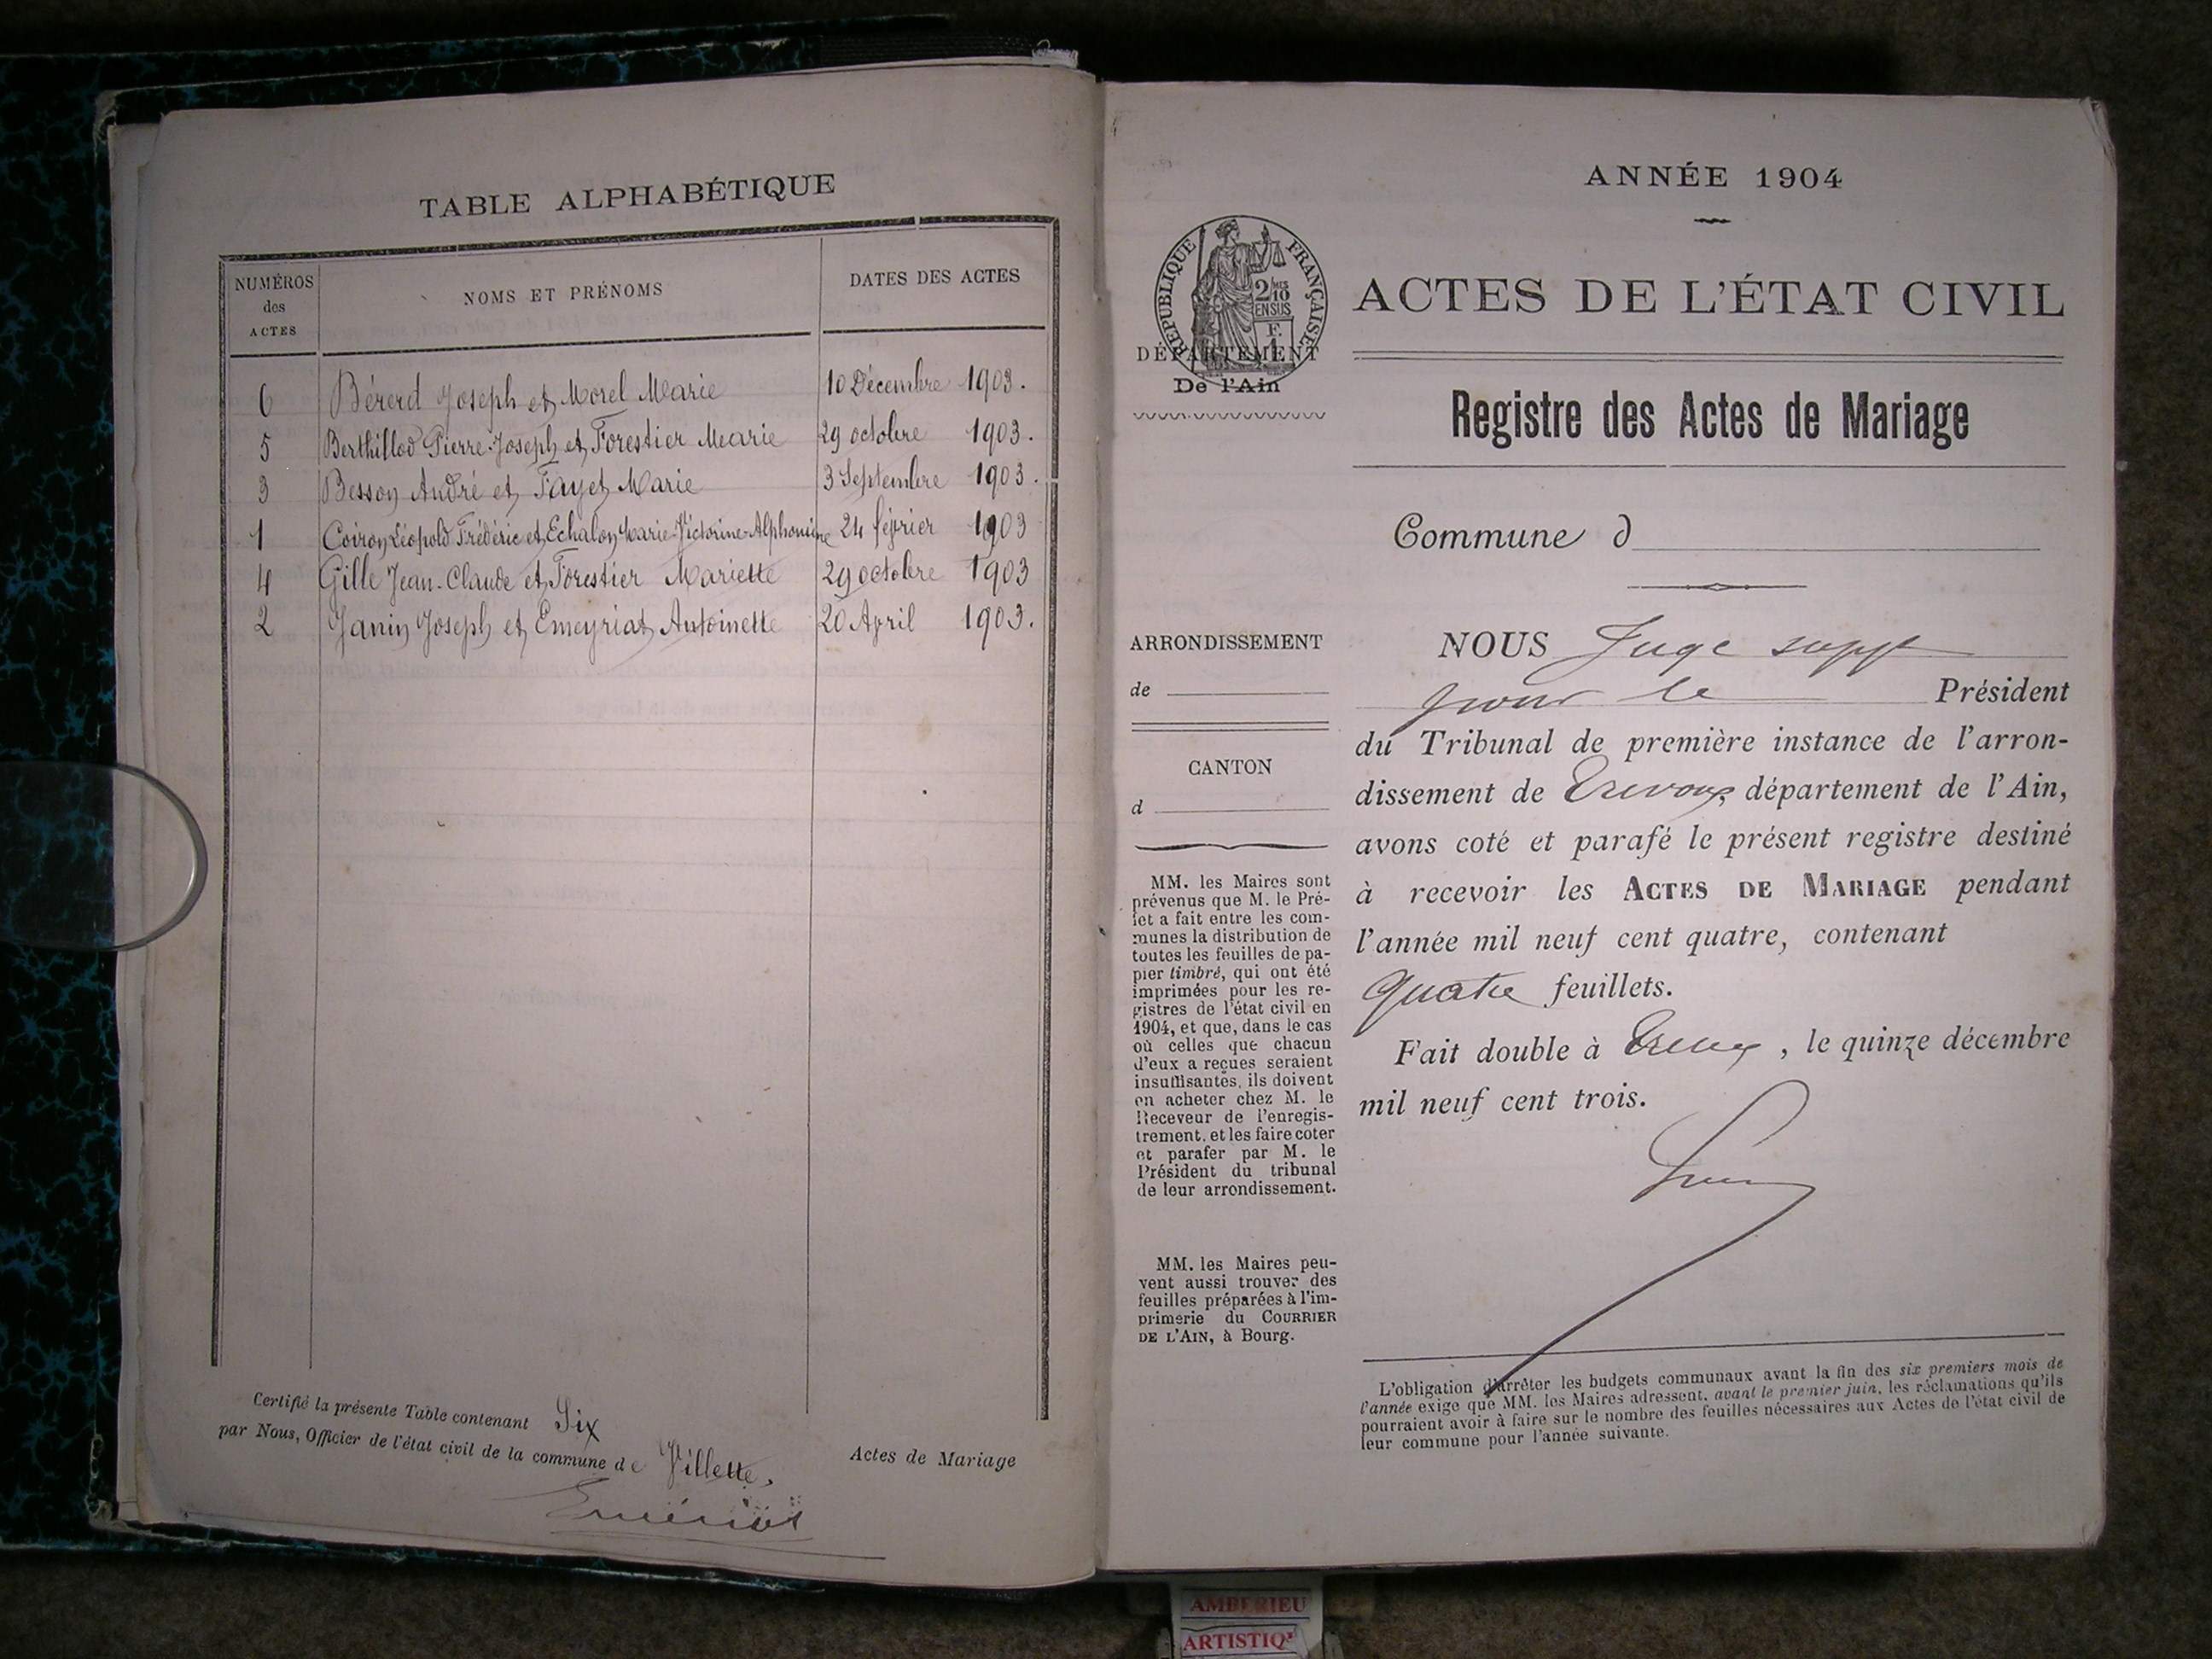 TABLE ALPHABÉTIQUE
NUMÉROS
des
ACTES
NOMS ET PRÉNOMS
DATES DES ACTES
6 Bérerd Joseph et Morel Marie 10 Décembre 1903.
5 Berthillod Pierre-Joseph et Forestier Marie 29 octobre 1903.
3 Besson André et Fayet Marie 3 Septembre 1903.
1 Coiron Léopold Frédéric et Echalon Marie-Victorine-Alphonsine 24 février 1903
4 Gille Jean-Claude et Forestier Mariette 29 octobre 1903
2 Janin Joseph et Emeyriat Antoinette 20 April 1903.
Certifié la présente Table contenant Six
Actes de Mariage
par Nous, Officier de l'état civil de la commune de Villette,
ANNÉE 1904
RÉPUBLIQUE FRANÇAISE
2/10 MES
EN SUS
F.
DÉPARTEMENT
De l'Ain
ACTES DE L'ÉTAT CIVIL
Registre des Actes de Mariage
Commune d
ARRONDISSEMENT
de
CANTON
d
MM. les Maires sont
prévenus que M. le Pré-
fet a fait entre les com-
munes la distribution de
toutes les feuilles de pa-
pier timbré, qui ont été
imprimées pour les re-
gistres de l'état civil en
1904, et que, dans le cas
où celles que chacun
d'eux a reçues seraient
insuffisantes, ils doivent
en acheter chez M. le
Receveur de l'enregis-
trement, et les faire coter
et parafer par M. le
Président du tribunal
de leur arrondissement.
MM. les Maires peu-
vent aussi trouver des
feuilles préparées à l'im-
primerie du COURRIER
DE L'AIN, à Bourg.
NOUS Juge suppt
pour le Président
du Tribunal de première instance de l'arron-
dissement de Trévoux, département de l'Ain,
avons coté et parafé le présent registre destiné
à recevoir les ACTES DE MARIAGE pendant
l'année mil neuf cent quatre, contenant
quatre feuillets.
Fait double à Trévoux, le quinze décembre
mil neuf cent trois.
L'obligation d'arrêter les budgets communaux avant la fin des six premiers mois de
l'année exige que MM. les Maires adressent, avant le premier juin, les réclamations qu'ils
pourraient avoir à faire sur le nombre des feuilles nécessaires aux Actes de l'état civil de
leur commune pour l'année suivante.
AMBERIEU
ARTISTIQ